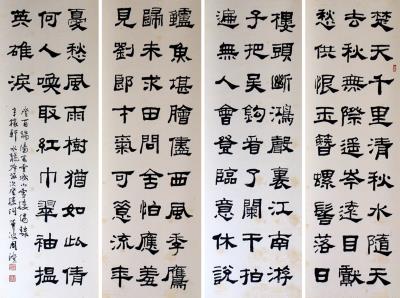 楚天千里清秋水隨天
去秋無際遙岑遠目獻
愁供恨玉簪螺髻落日
樓頭斷鴻聲裏江南游
子把吳鉤看了闌干拍
遍無人會登臨意休說
鱸魚堪膾儘西風季鷹
歸未求田問舍怕應羞
見劉郎才氣可惜流年
憂愁風雨樹猶如此倩
何人喚取紅巾翠袖揾
英雄淚
辛稼軒水龍吟